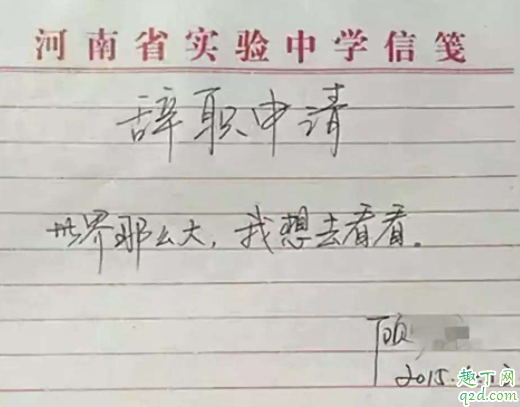 河南省实验中学信笺
辞职申请
世界那么大，我想去看看。
顾
2015.
趣丁网
q2d.com